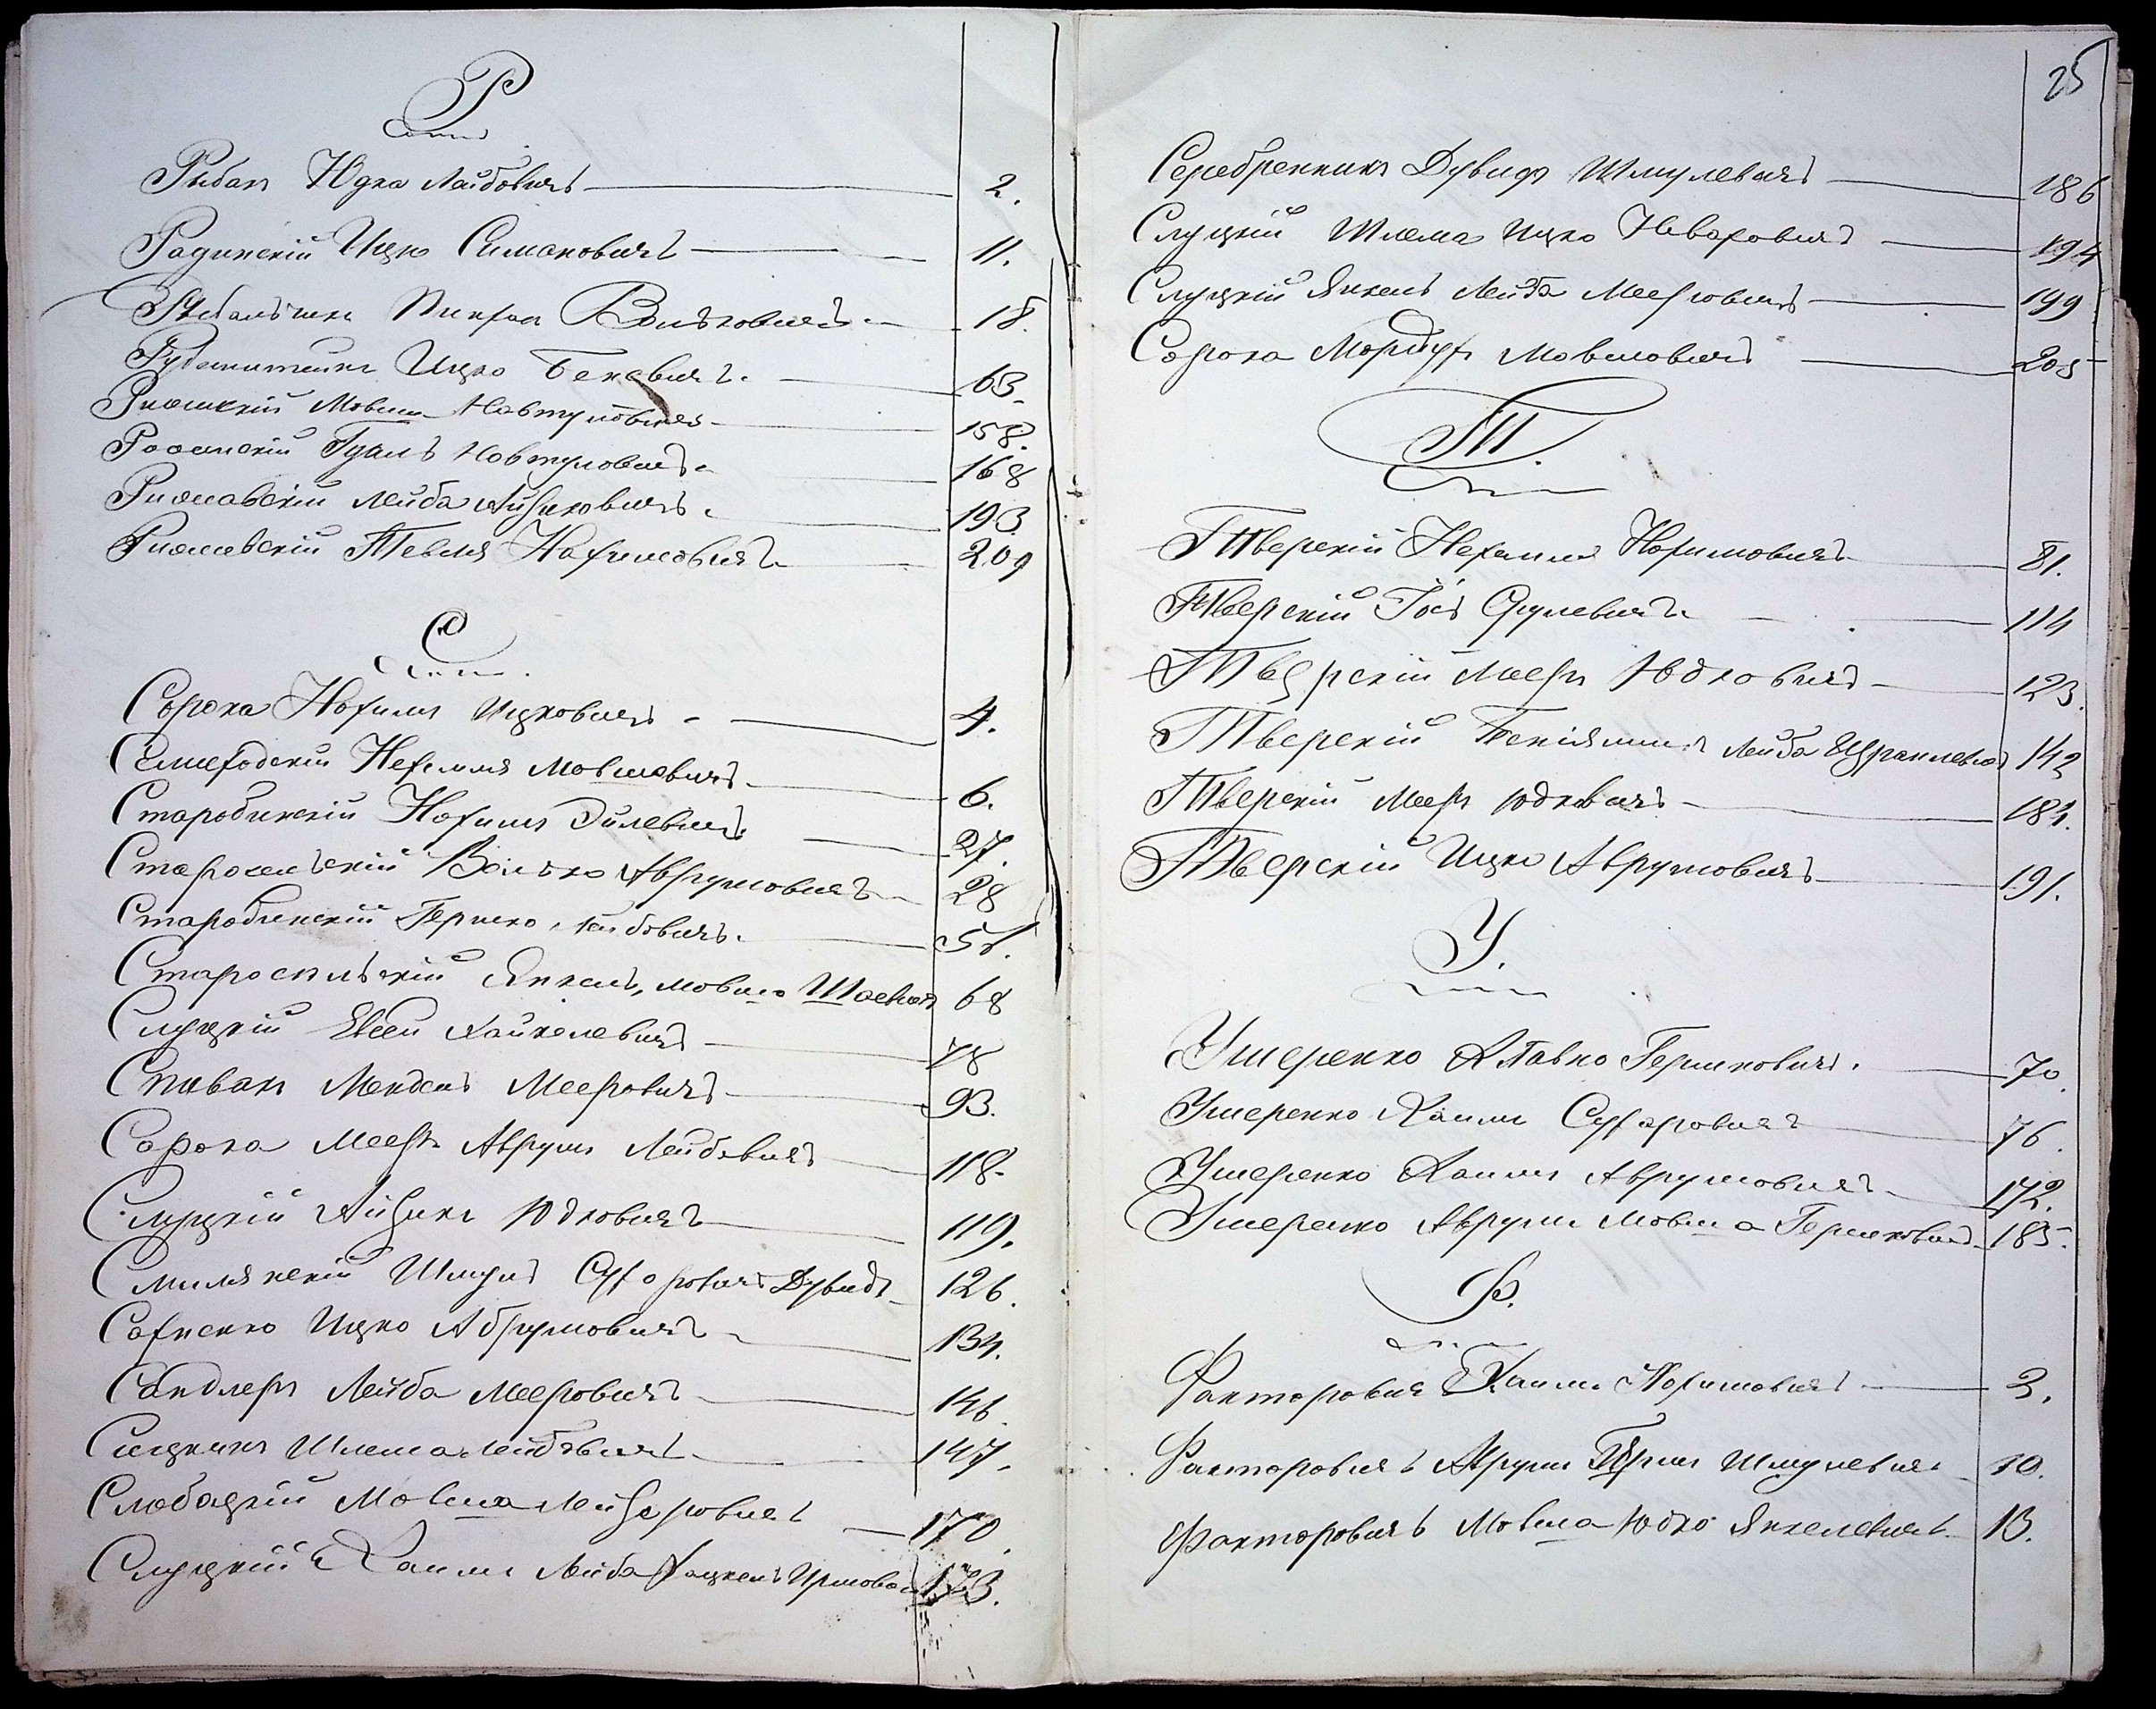 Р
Рыбакъ Юдка Лейбовичъ 2.
Радинскій Ицко Симоновичъ 11.
Рыбальчикъ Вольковичъ 18.
Рубенштейнъ Ицко Беновичъ 63.
Мовша Нафтуловичъ 158.
Нафтуловичъ 168
Ржавскій Лейба Айзиковичъ 193
Тевля Нахимовичъ 209
С
Сорока Нохимъ Ицковичъ 4.
Нехемія Мовшовичъ 6.
Старобинскій Нохимъ Эйлевичъ 27.
Старосельскій Волько Аврумовичъ 28
Старобинскій Гершко Лейбовичъ 51.
Старосельскій Янкель, Мовша Шаевичъ 68
Слуцкій Евсей Хайкелевичъ 78
Спивакъ Мендель Мееровичъ 93.
Сорока Мееръ Аврумъ Лейбовичъ 118.
Слуцкій Айзикъ Юдковичъ 119.
Смилянскій Шмулъ Сухоровичъ Дувидъ 126.
Ицко Абрумовичъ 134.
Сандлеръ Лейба Мееровичъ 146
Шлема Лейбовичъ 147.
Слободскій Мовша Лейзеровичъ 170.
Слуцкій Хаимъ Лейба Хацкель 173.
25
Серебренникъ Дувидъ Шмулевичъ 186
Слуцкій Шлема Ицко Неваховичъ 194
Слуцкій Янкель Лейба Мееровичъ 199
Сорока Мордухъ Мовшовичъ 205
Т.
Тверскій Нехемія Нохимовичъ 81.
Тверскій Іосъ Срулевичъ 114
Тверскій Мееръ Юдковичъ 123.
Тверскій Беніяминъ Лейба Израилевичъ 142
Тверскій Мееръ Юдковичъ 184.
Тверскій Ицко Аврумовичъ 191.
У.
Ушеренко Хлавно Гершковичъ. 70.
Ушеренко Хаимъ Сухаровичъ 76.
Ушеренко Хаимъ Аврумовичъ 172.
Ушеренко Аврумъ Мовша Гершковичъ 185.
Ф.
Факторовичъ Хаимъ Нохимовичъ 3.
Факторовичъ Аврумъ Шмулевичъ 10.
Факторовичъ Мовша Юдко Янкелевичъ 13.